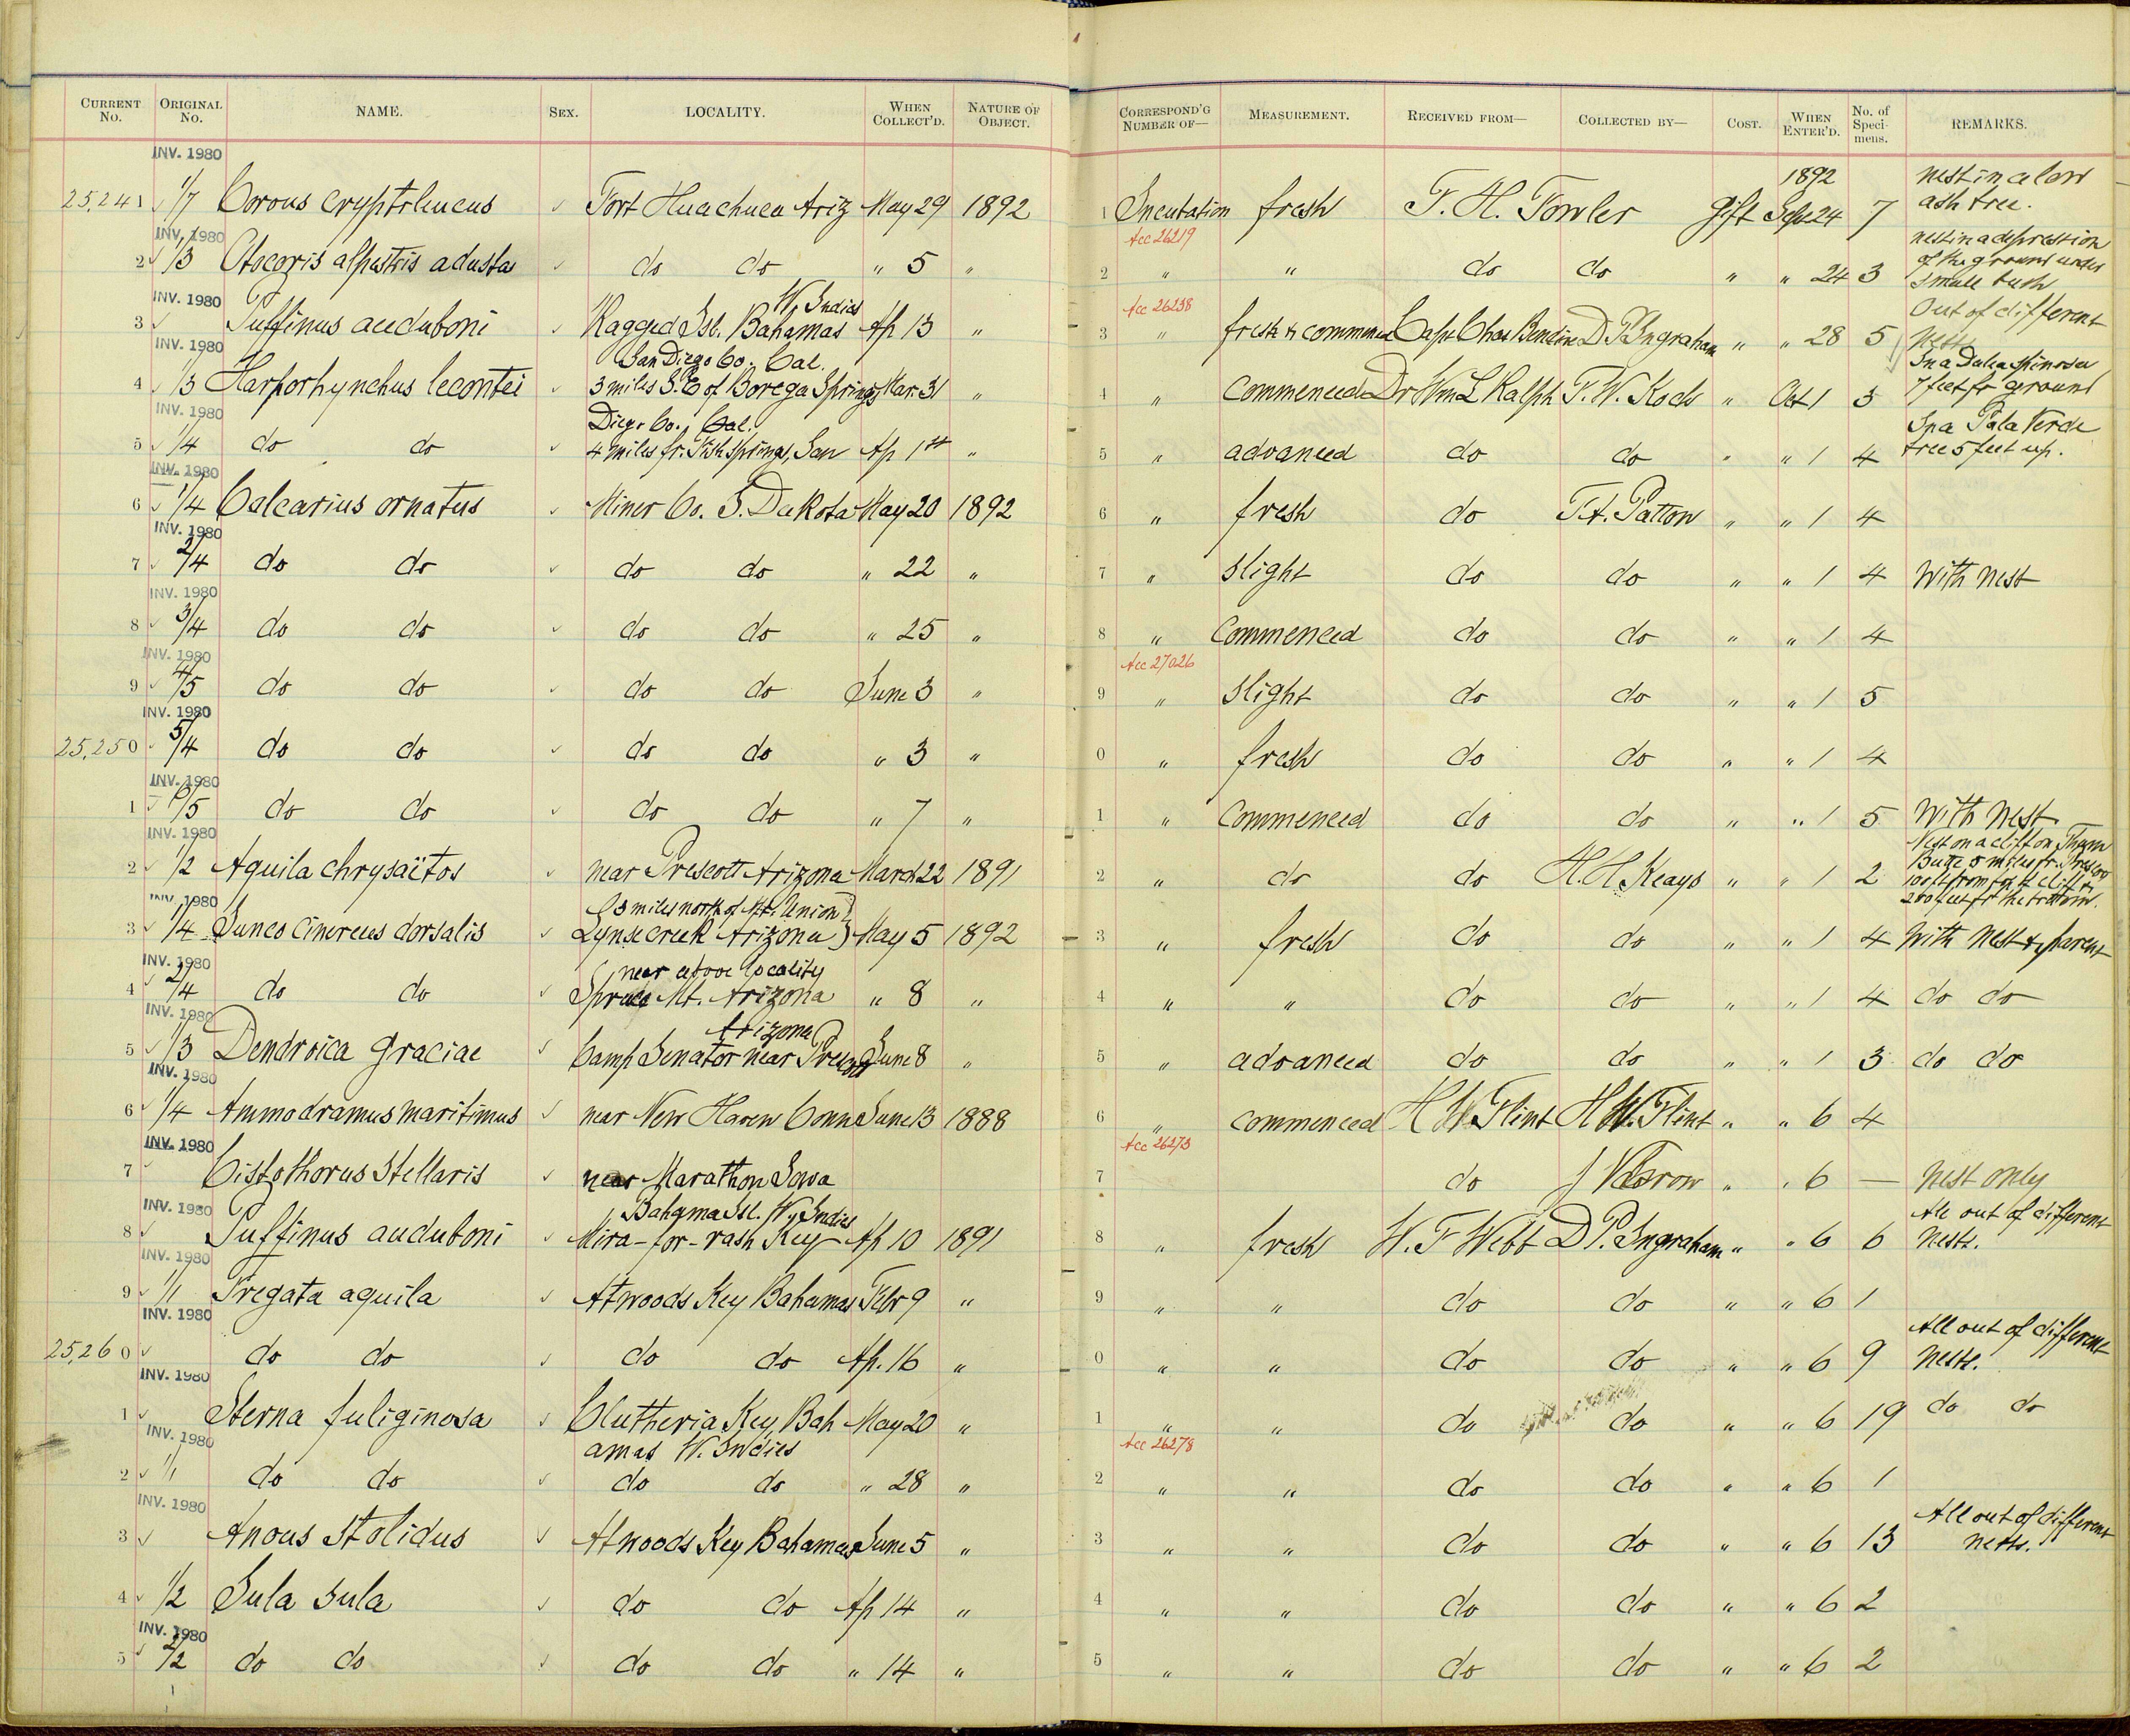 CURRENT No. ORIGINAL No. NAME. SEX. LOCALITY. WHEN COLLECT'D. NATURE OF OBJECT. CORRESPOND'G NUMBER OF— MEASUREMENT. RECEIVED FROM— COLLECTED BY— COST. WHEN ENTER'D. No. of Speci-mens. REMARKS.
INV. 1980 1892 nest in a low
25,241 1/7 Corvus cryptoleucus Fort Huachuca Ariz May 29 1892 1 Incubation fresh F. H. Fowler gift Sept 24 7 ash tree.
INV. 1980 Acc 26219 nest in a depression
2 1/3 Otocoris alpestris adusta do do " 5 " 2 " " do do " " 24 3 of the ground under
small bush
INV. 1980 W. Indies Acc 26238 Out of different
3 Puffinus auduboni Ragged Isl. Bahamas Ap 13 " 3 " fresh & commenced Capt Chas Bendire D P Ingraham " " 28 5 nests
INV. 1980 San Diego Co. Cal. In a Dalea spinosa
4 1/3 Harporhynchus lecontei 3 miles S.E of Borega Springs Mar. 31 " 4 " commenced Dr Wm L Ralph F. W. Koch " Oct 1 3 7 feet fr ground
INV. 1980 Diego Co., Cal. In a Palo Verde
5 1/4 do do 4 miles fr. Fish Springs, San Ap 1st " 5 " advanced do do " " 1 4 tree 5 feet up.
INV. 1980
6 1/4 Calcarius ornatus Miner Co. S. Dakota May 20 1892 6 " fresh do F.A. Patton " " 1 4
INV. 1980
7 2/4 do do do do " 22 " 7 " slight do do " " 1 4 With nest
INV. 1980
8 3/4 do do do do " 25 " 8 " Commenced do do " " 1 4
INV. 1980 Acc 27026
9 4/5 do do do do June 3 " 9 " slight do do " " 1 5
INV. 1980
25,250 5/4 do do do do " 3 " 0 " fresh do do " " 1 4
INV. 1980
1 6/5 do do do do " 7 " 1 " Commenced do do " " 1 5 With nest
INV. 1980 Nest on a cliff on Thumb
2 1/2 Aquila chrysaëtos near Prescott Arizona March 22 1891 2 " do do H. H. Keays " " 1 2 Butte 5 miles fr. Prescott
100 ft from top of cliff &
200 feet fr the bottom.
INV. 1980 (3 miles north of Mt. Union)
3 1/4 Junco cinereus dorsalis Lynx creek Arizona May 5 1892 3 " fresh do do " " 1 4 With nest & parent
INV. 1980 near above locality
4 2/4 do do Spruce Mt. Arizona " 8 " 4 " " do do " " 1 4 do do
INV. 1980 Arizona
5 1/3 Dendroica graciae Camp Senator near Prescott June 8 " 5 " advanced do do " " 1 3 do do
INV. 1980
6 1/4 Ammodramus maritimus near New Haven Conn June 13 1888 6 " commenced H W. Flint H W. Flint " " 6 4
INV. 1980 Acc 26273
7 Cistothorus stellaris near Marathon Iowa 7 do " " 6 — nest only
INV. 1980 Bahama Isl. W. Indies All out of different
8 Puffinus auduboni Mira-for-vash Key Ap 10 1891 8 " fresh W. F Webb D P. Ingraham " " 6 6 nests.
INV. 1980
9 1/1 Fregata aquila Atwoods Key Bahamas Febr 9 " 9 " " do do " " 6 1
INV. 1980 All out of different
25,260 do do do do Ap. 16 " 0 " " do do " " 6 9 nests.
INV. 1980
1 Sterna fuliginosa Elutheria Key, Bah May 20 " 1 " " do do " " 6 19 do do
INV. 1980 amas W. Indies Acc 26278
2 1/1 do do do do " 28 " 2 " " do do " " 6 1
INV. 1980 All out of different
3 Anous stolidus Atwoods Key Bahamas June 5 " 3 " " do do " " 6 13 nests.
4 1/2 Sula sula do do Ap 14 " 4 " " do do " " 6 2
INV. 1980
5 2/2 do do do do " 14 " 5 " " do do " " 6 2